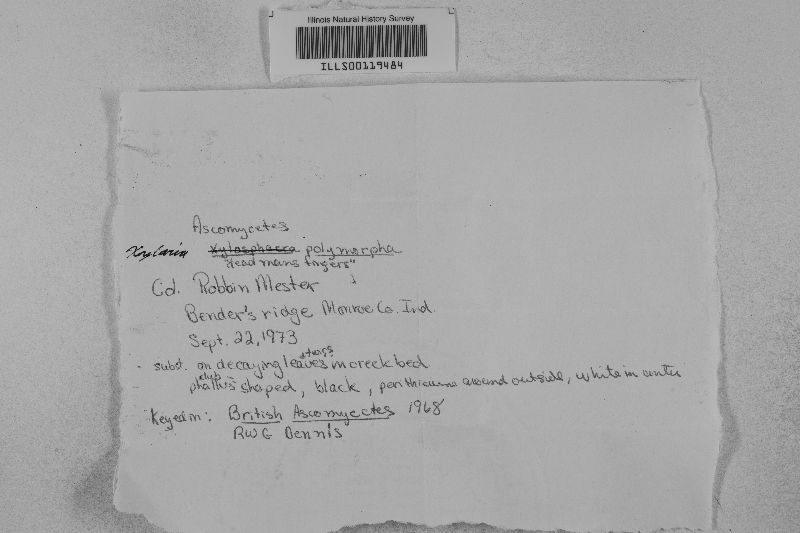 Illinois Natural History Survey
ILLS00119484
Ascomycetes
Xylaria Xylosphaera polymorpha
"dead mans fingers"
Col. Robbin Mester
Bender's ridge Monroe Co. Ind.
Sept. 22, 1973
subst. on decaying leaves in creek bed
club
phallus shaped, black, perithicums around outside, white in center
Keyed in: British Ascomycetes 1968
RWG Dennis